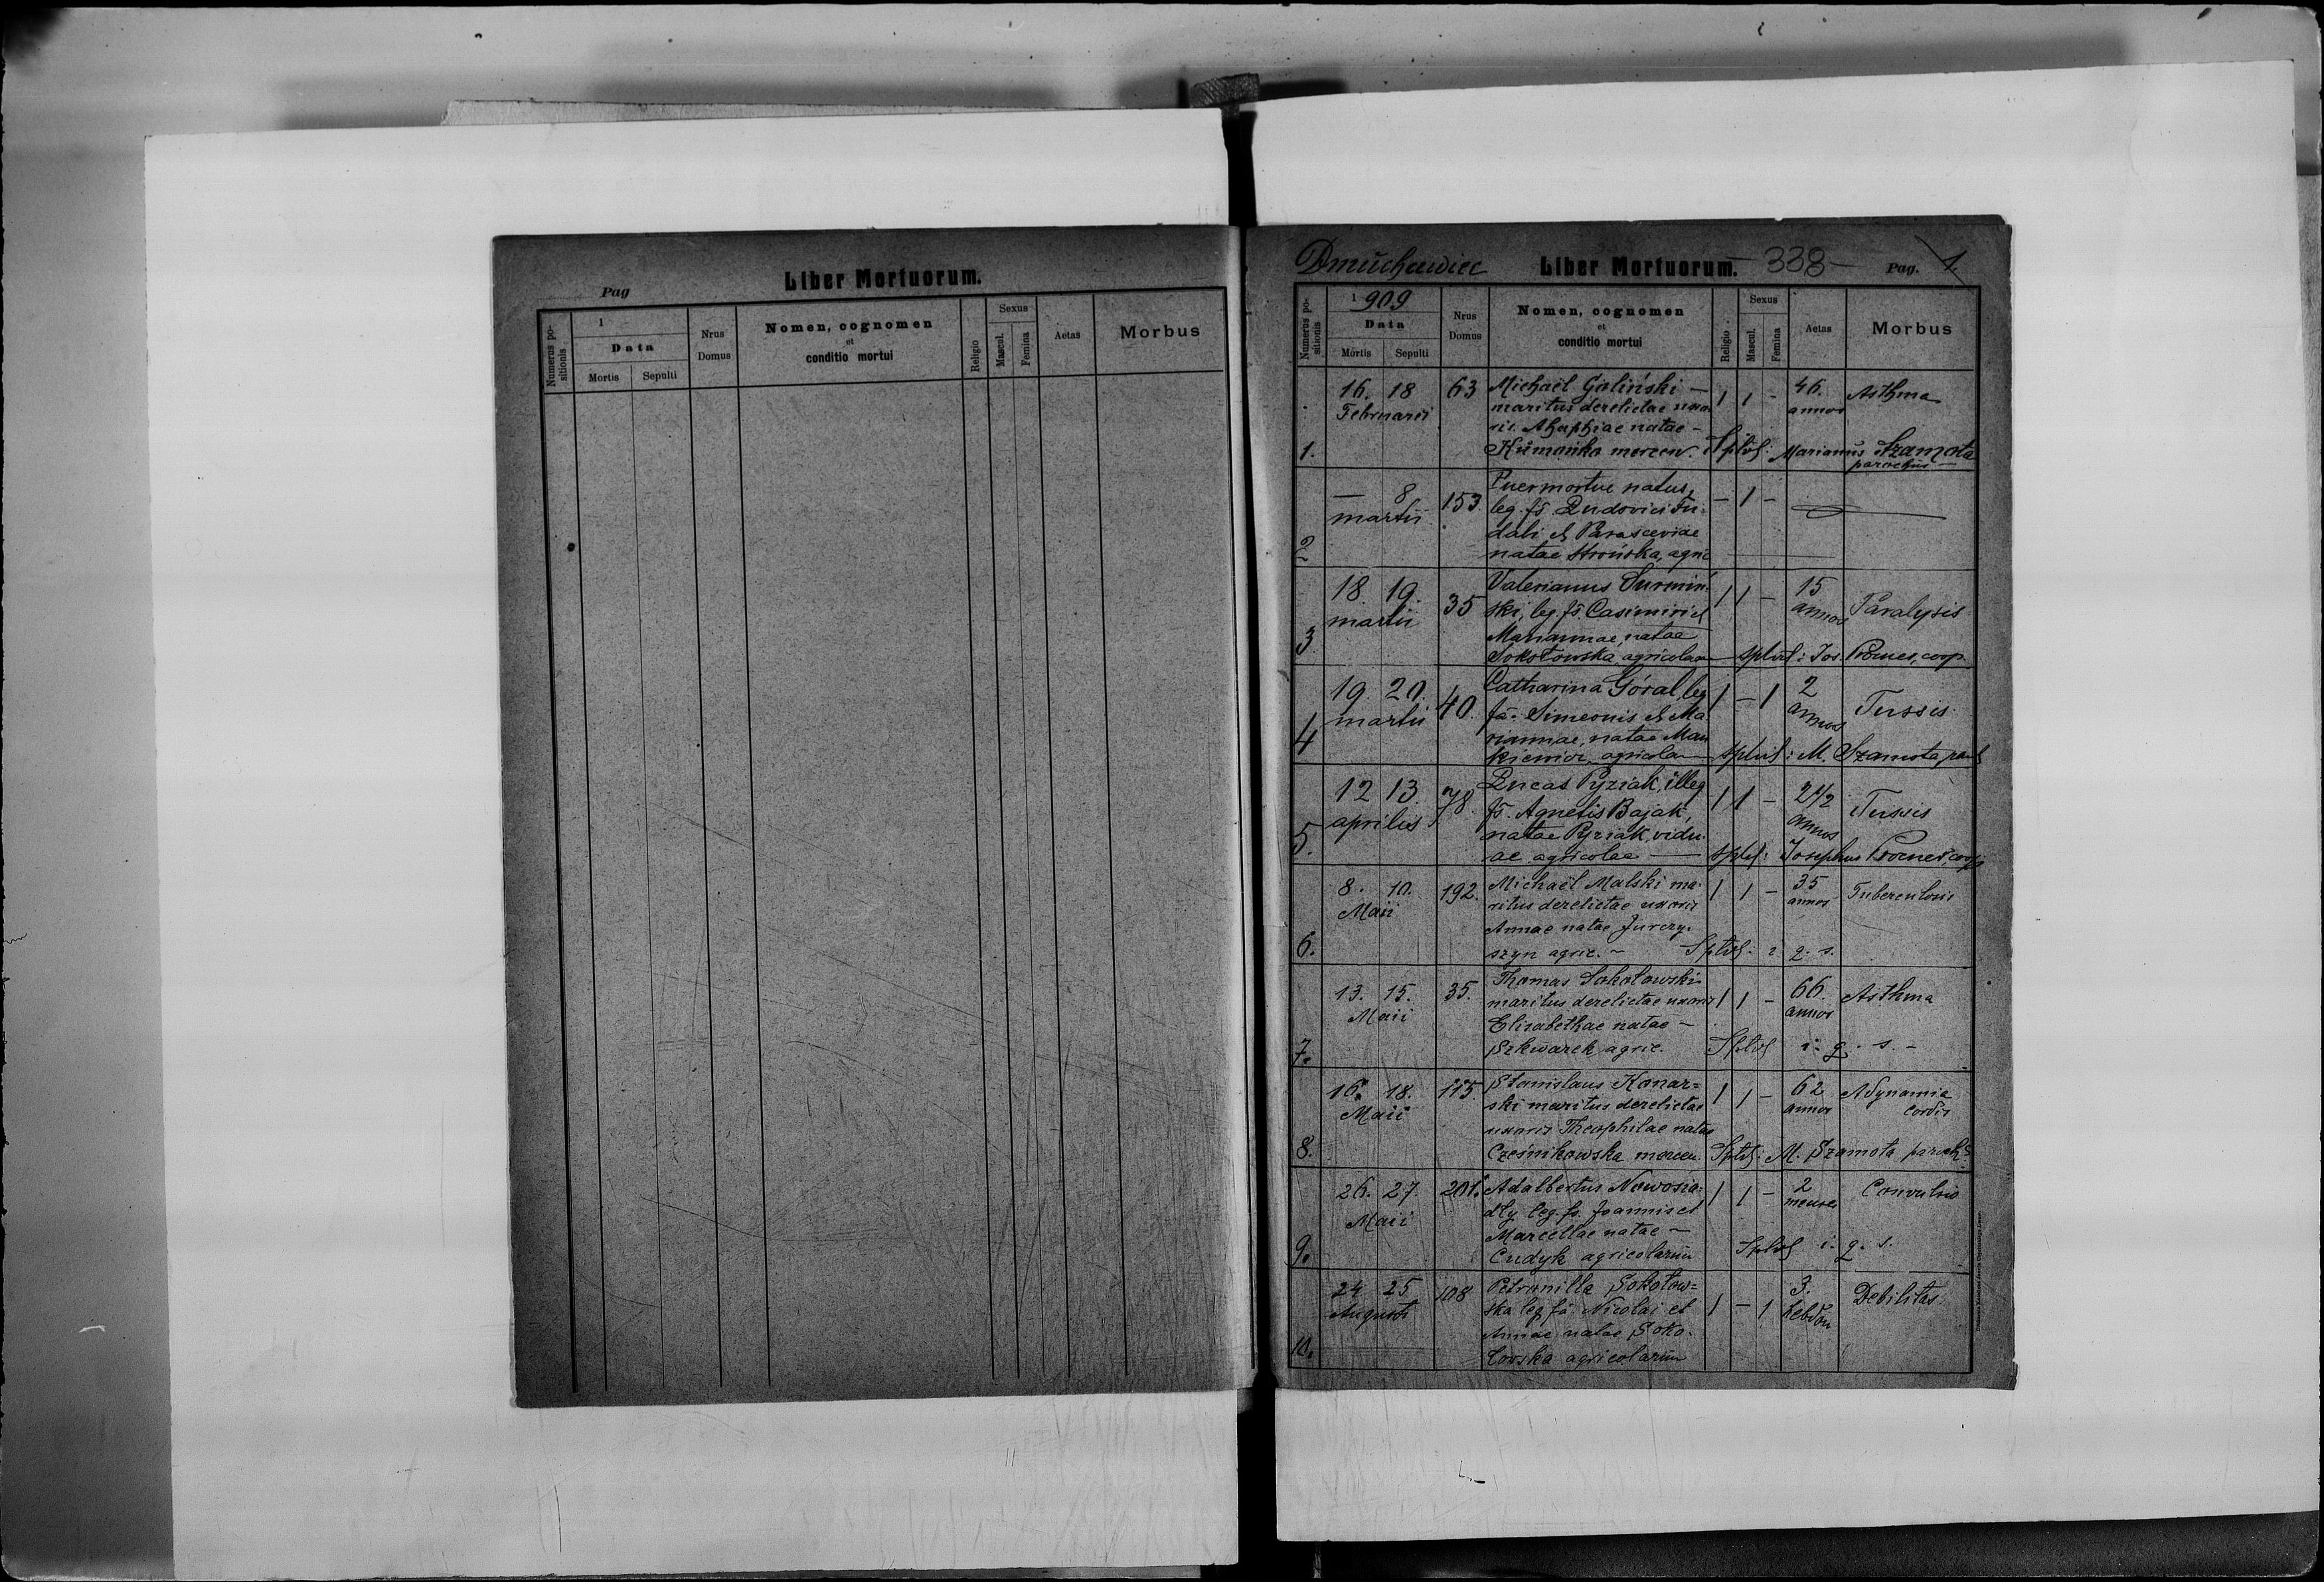 Pag
Liber Mortuorum.
Numerus positionis
1
Data
Mortis Sepulti
Nrus Domus
Nomen, cognomen
et
conditio mortui
Religio
Sexus
Mascul. Femina
Aetas
Morbus
Dmuchawiec Liber Mortuorum. - 338 - Pag. 1.
Numerus positionis
1909
Data
Mortis Sepulti
Nrus Domus
Nomen, cognomen
et
conditio mortui
Religio
Sexus
Mascul. Femina
Aetas
Morbus
16. 18 63 Michaël Goliński — 1 1 - 46. Asthma
Februarii maritus derelictae uxo annos
ris Ahaphiae natae -
1. mercen. Spltus: Marianus Szamota
parochus
— 8 153. Puer mortue natus, - 1 -
martii leg. fs. Ludovici Fu-
dali et Parasceviae
2 natae Strońska, agric
18 19. 35 Valerianus Surmiń- 1 1 - 15 Paralysis
martii ski, leg. fs. Casimiri et annos
Mariannae, natae
3 Sokołowska, agricolarum spltus: Jos. coop.
19. 20. 40. Catharina Góral, leg 1 - 1 2 Tussis
martii fa. Simeonis et Ma annos
riannae, natae Man
4 kiewicz, agricolarum spltus: M. Szamota par
12 13 78. Lucas Pyziak, illeg 1 1 - 2 1/2 Tussis
aprilis fs. Agnetis Bajak, annos
natae Pyziak, vidu-
5. ae agricolae — splts: Josephus coop
8. 10. 192. Michaël Malski ma- 1 1 - 35 Tuberculosis
Maii ritus derelictae uxoris annos
Annae natae Jurczy-
6. szyn agric. - Spltus: i. q. s.
13. 15. 35. Thomas Sokołowski 1 1 - 66. Asthma
Maii maritus derelictae uxoris annos
Elisabethae natae -
7. Szkwarek agric. Spltus i. q. s. -
16. 18. 115. Stanislaus Konar= 1 1 - 62 Adynamia
Maii ski maritus derelictae annos cordis
uxoris Theophilae natae
8. Cześnikowska mercen. Splts: M. Szamota paroch
26. 27. 201. Adalbertus Nowosia- 1 1 - 2 Convulsio
Maii dły leg. fs. Joannis et menses
Marcellae natae -
9. Cudyk agricolarum Spltus i. q. s.
24 25 108 Petronilla Sokołow= 1 - 1 3. Debilitas
Augusti ska leg. fa. Nicolai et hebdom
Annae natae Soko-
10. łowska agricolarum